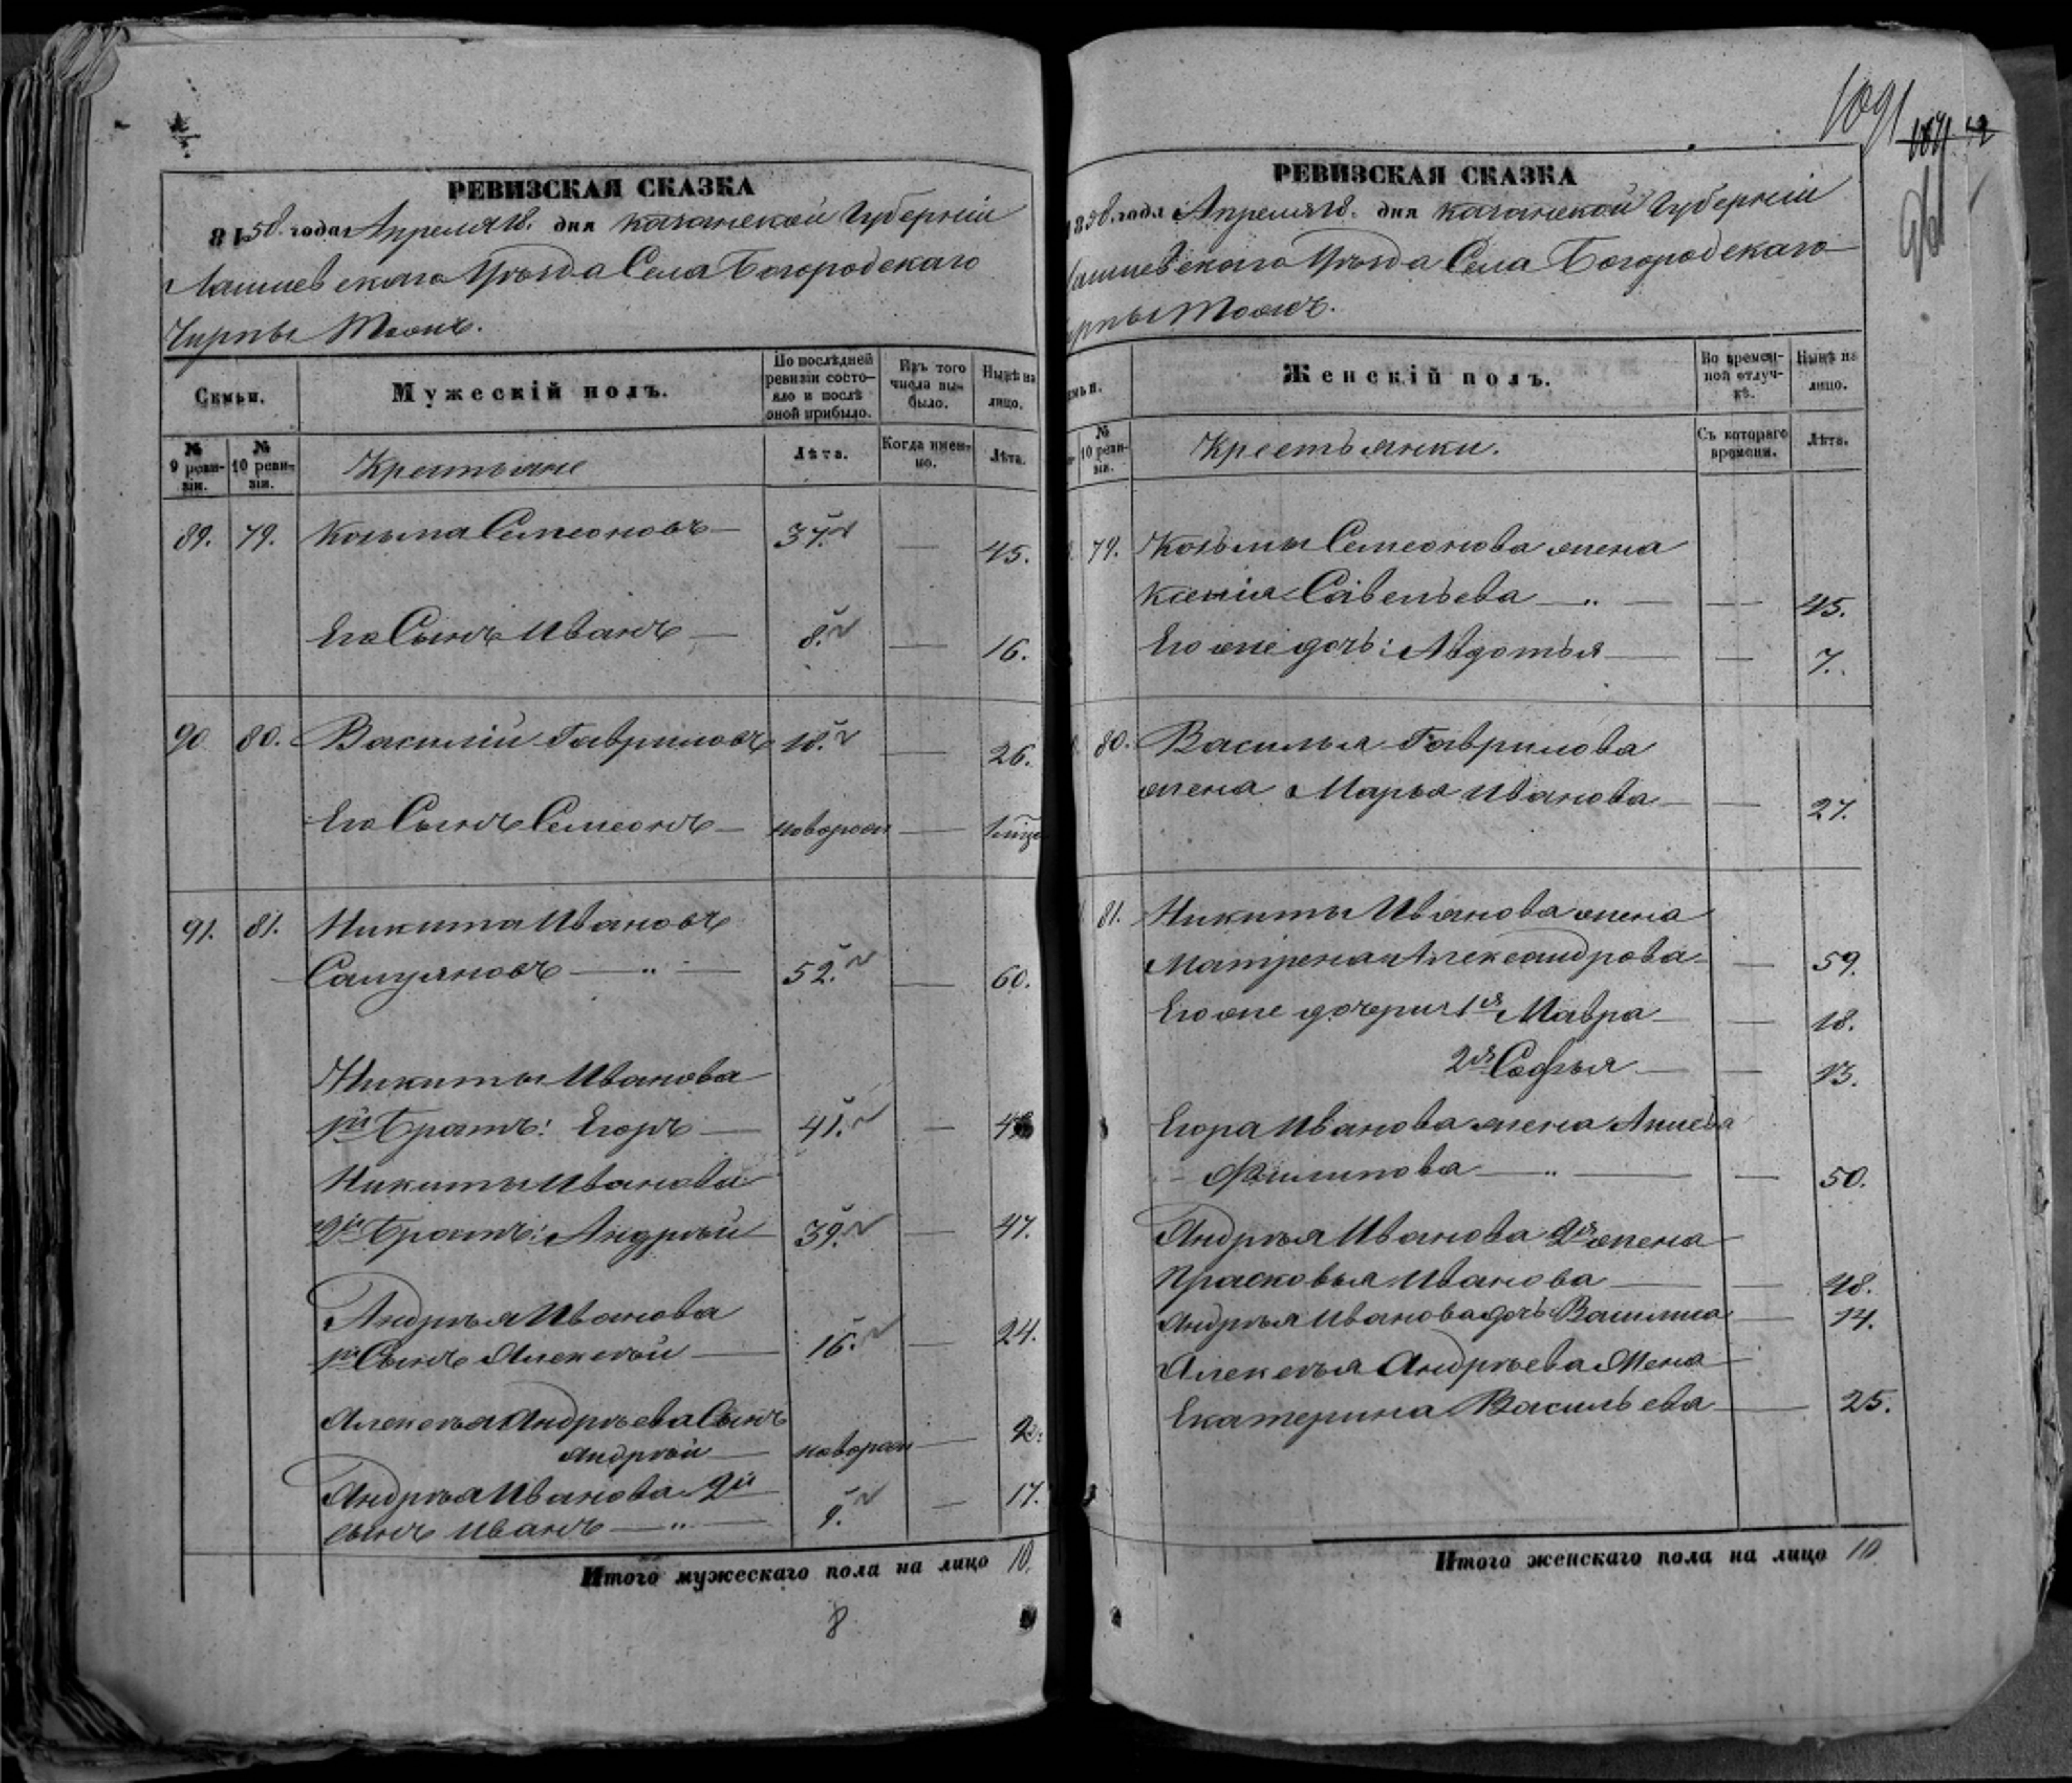 РЕВИЗСКАЯ СКАЗКА
8158. года Апреля 18. дня Казанской Губерніи
Лаишевскаго Уѣзда Села Богородскаго
Чирпы тожъ.
Семьи.
Мужескій полъ.
По послѣдней ревизіи состояло и послѣ оной прибыло.
Изъ того числа выбыло.
Нынѣ на лицо.
№ 9 ревизіи.
№ 10 ревизіи.
Крестьяне
Лѣта.
Когда именно.
Лѣта.
89. 79. Козьма Семеоновъ — 37. — 45.
Его Сынъ Иванъ — 8. — 16.
90 80. Василій Гавриловъ 18. — 26.
Его Сынъ Семеонъ — новорож —
91. 81. Никита Ивановъ
— „ — 52. — 60.
Никиты Иванова
1й Братъ: Егоръ — 41. —
Никиты Иванова
2й Братъ: Андрей 39. — 47.
Андрея Иванова
1й Сынъ Алексѣй — 16. — 24.
Алексѣя Андреева Сынъ
Андрей — новорож —
Андрея Иванова 2й
сынъ Иванъ — „ — 9. — 17.
Итого мужескаго пола на лицо 10.
8
1091
РЕВИЗСКАЯ СКАЗКА
1858. года Апреля 18. дня Казанской Губерніи
Лаишевскаго Уѣзда Села Богородскаго
Чирпы тожъ.
Семьи.
Женскій полъ.
Во временной отлучкѣ.
Нынѣ на лицо.
№ 10 ревизіи.
Крестьянки.
Съ котораго времени.
Лѣта.
79. Козьмы Семеонова жена
Ксенія Савельева — „ — — 45.
Его же дочь: Авдотья — — 7.
80. Василья Гаврилова
жена Марья Иванова — — 27.
81. Никиты Иванова жена
Матрена Александрова — — 59.
Его же дочери 1я Мавра — — 18.
2я Софья — — 13.
Егора Иванова жена
Филипова — „ — — 50.
Андрея Иванова 2я жена
Прасковья Иванова — — 48.
Андрея Иванова дочь Василиса — 14.
Алексѣя Андреева Жена
Екатерина Васильева — 25.
Итого женскаго пола на лицо 10.